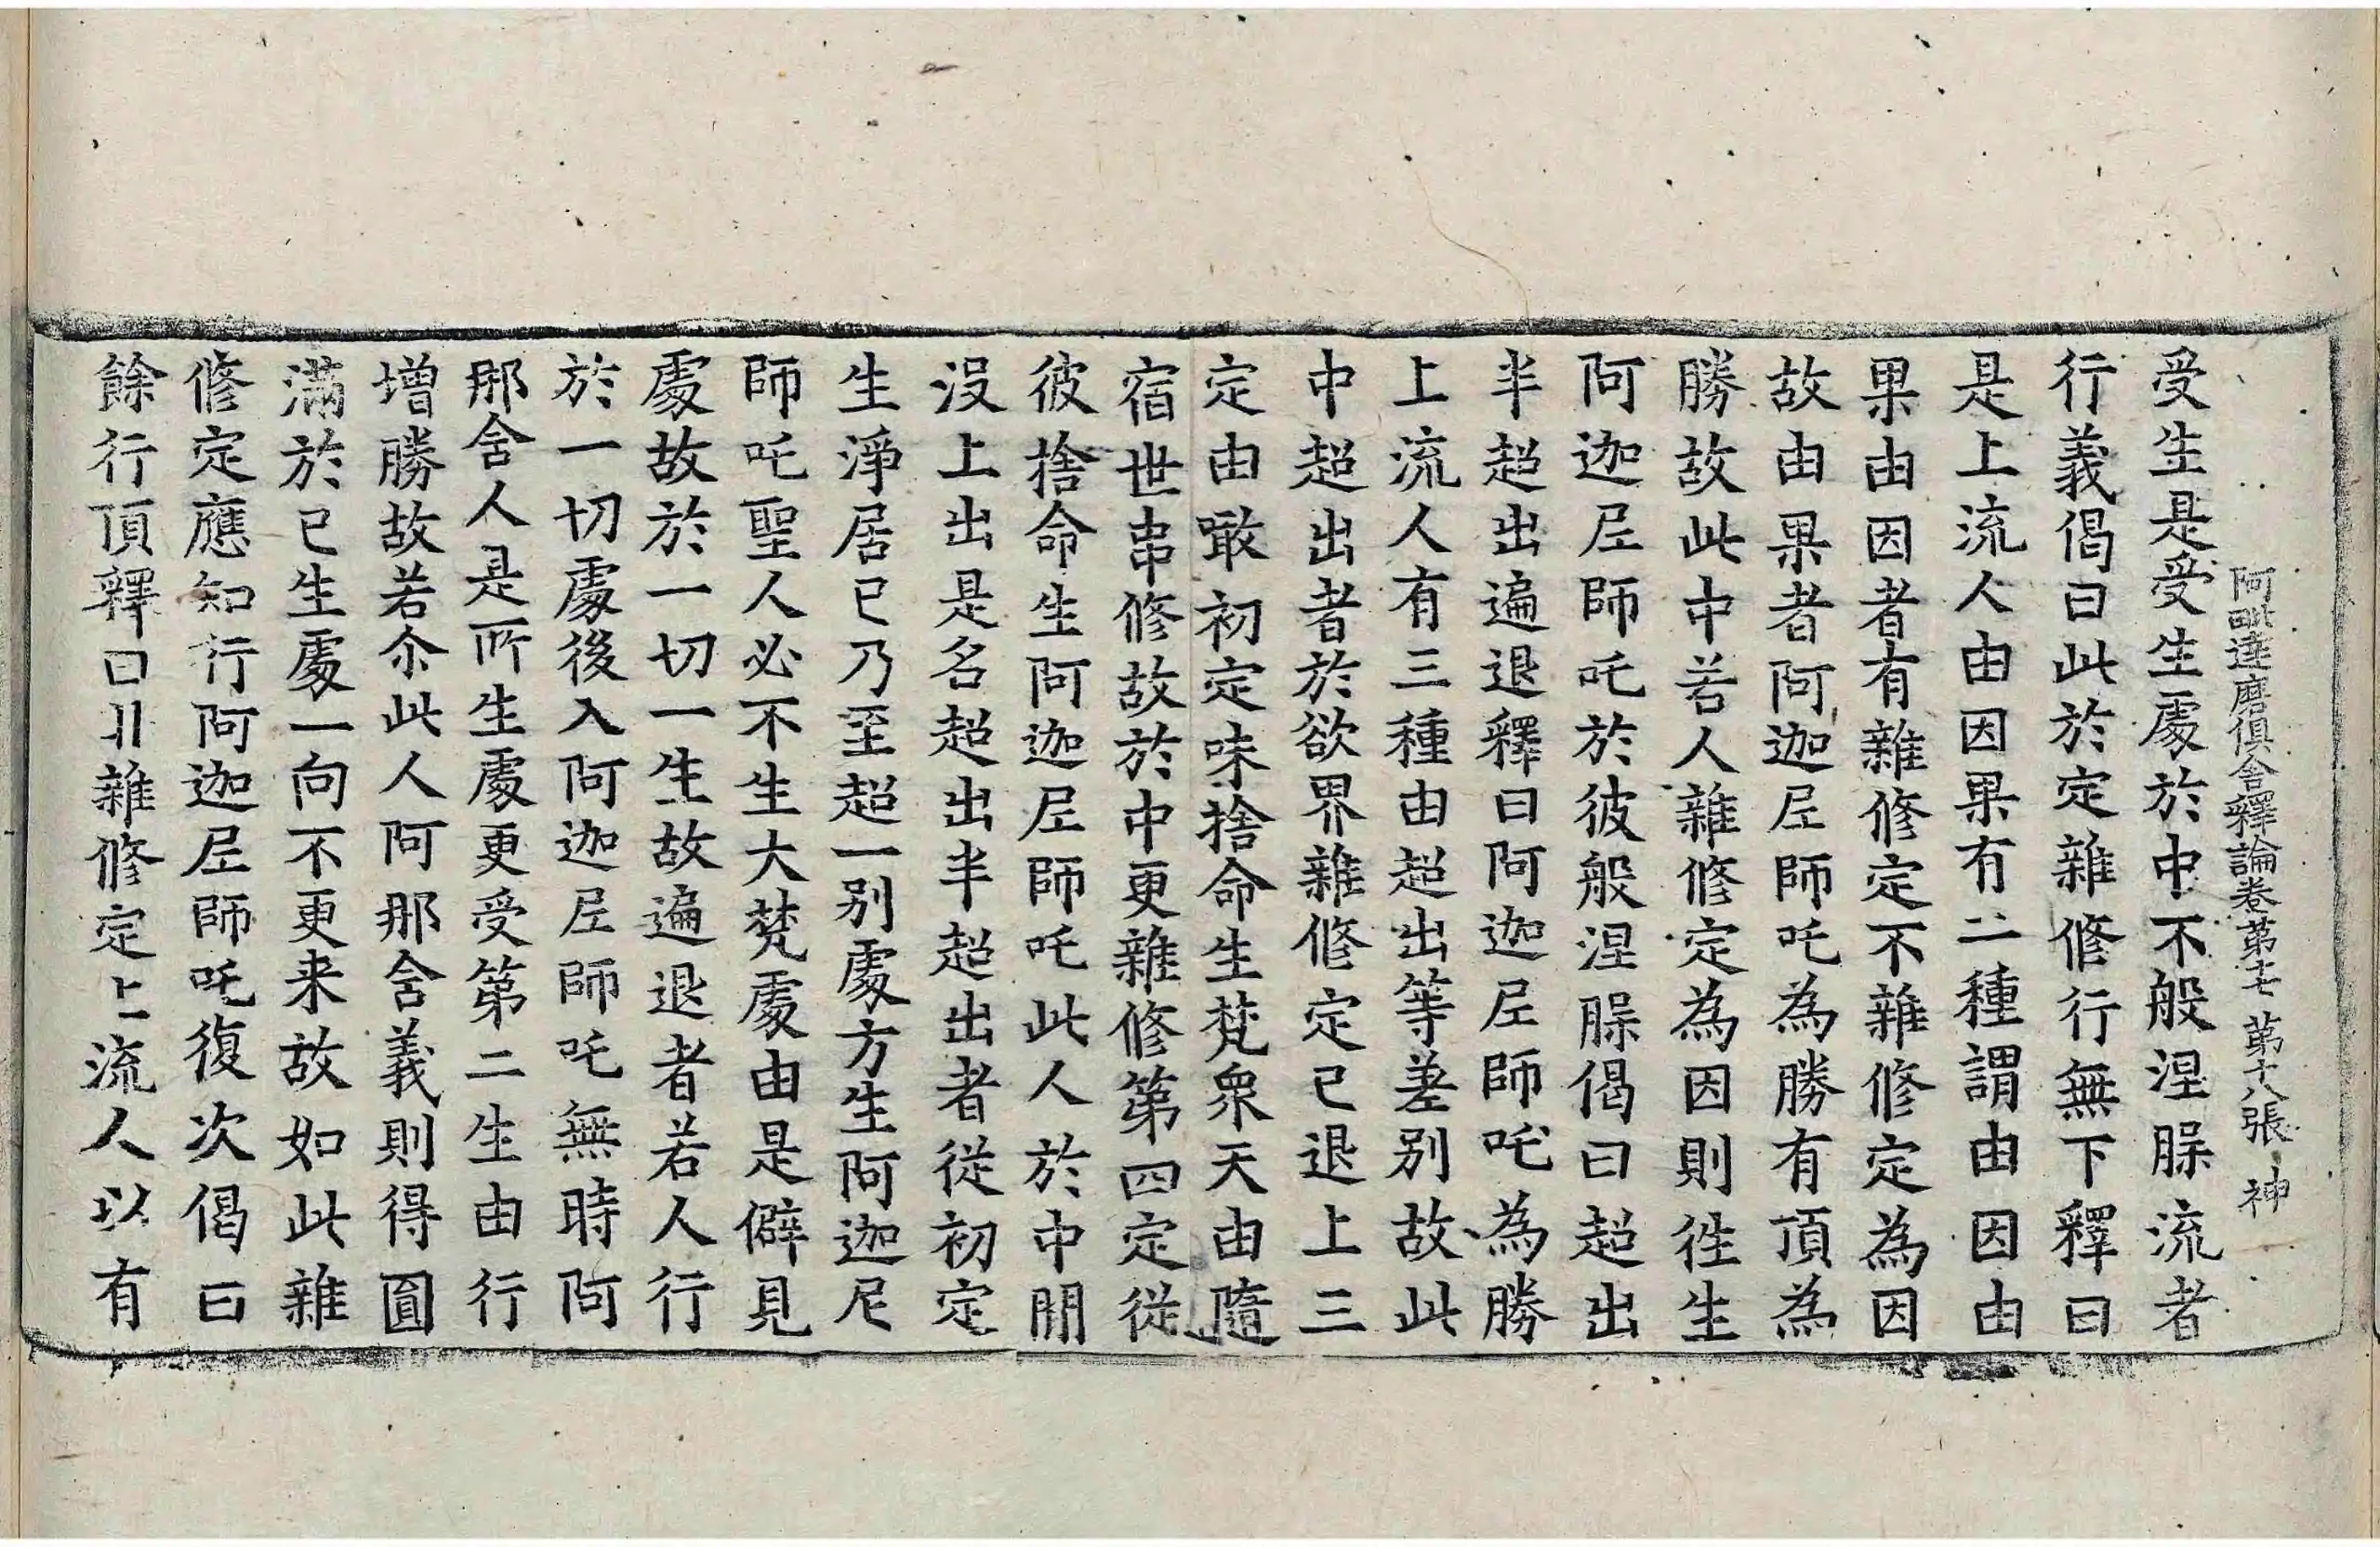 阿毗達磨俱舍釋論卷第十七 第十八張 神
受生是受生處於中不般涅槃流者
行義偈曰此於定雜修行無下釋曰
是上流人由因果有二種謂由因由
果由因者有雜修定不雜修定為因
故由果者阿迦尼師吒為勝有頂為
勝故此中若人雜修定為因則徃生
阿迦尼師吒於彼般涅槃偈曰超出
半超出遍退釋曰阿迦尼師吒為勝
上流人有三種由超出等差别故此
中超出者於欲界雜修定已退上三
定由噉初定味捨命生梵眾天由隨
宿世串修故於中更雜修第四定從
彼捨命生阿迦尼師吒此人於中間
没上出是名超出半超出者從初定
生淨居已乃至超一别處方生阿迦尼
師吒聖人必不生大梵處由是僻見
處故於一切一生故遍退者若人行
於一切處後入阿迦尼師吒無時阿
那含人是所生處更受第二生由行
增勝故若尒此人阿那含義則得圓
滿於已生處一向不更来故如此雜
修定應知行阿迦尼師吒復次偈曰
餘行頂釋曰非雜修定上流人以有